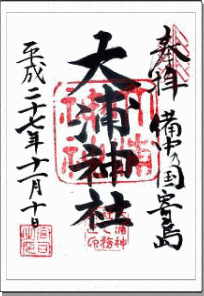 奉拝 備中の国寄島
大浦神社
平成二十七年十一月十日